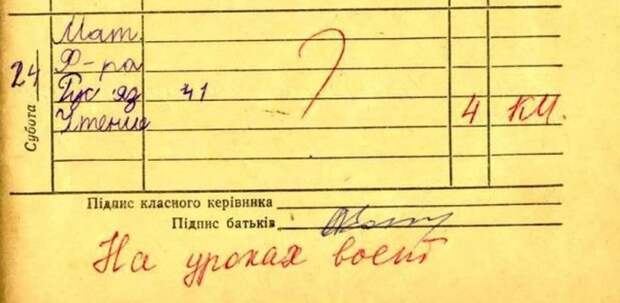 Мат.
24
Ф-ра
Рус яз 41
Субота
Чтение 4 КМ.
Підпис класного керівника
Підпис батьків
На уроках воет